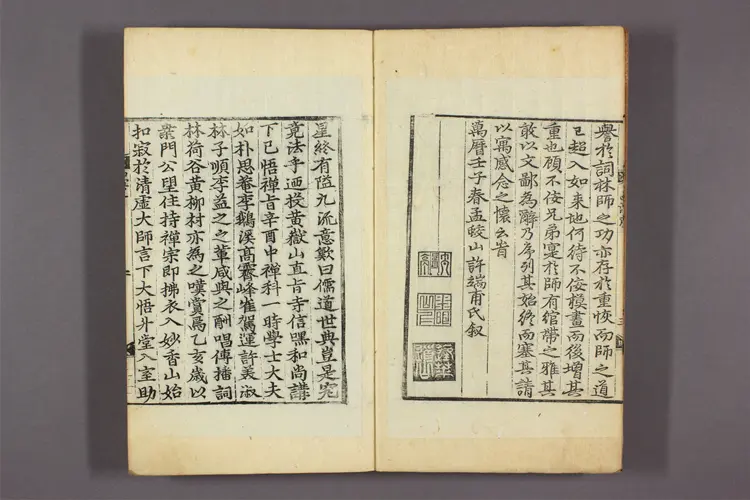 譽於詞林師之功亦存於重恢而師之道
已超入如來地何待不佞模畫而後增其
重也顧不佞兄弟寔於師有綰帶之雅其
敢以文鄙為辭乃序列其始終而塞其請
以寓感念之懷云肯
萬曆壬子春孟蛟山許端甫氏叙
星終有隘九流意歎曰儒道世典豈是究
竟法乎迺投黃嶽山直指寺信嘿和尚講
下已悟禪旨辛酉中禪科一時學士大夫
如朴思菴李鵝溪高霽峰崔駕運許美淑
林子順李益之之輩咸與之酬唱傳播詞
林荷谷黃柳村亦為之嘆賞焉乙亥歲以
衆門公望住持禪宗即拂衣入妙香山始
扣寂於清虛大師言下大悟升堂入室助